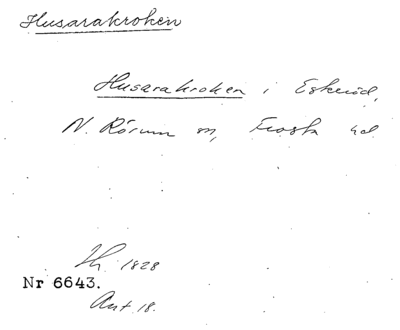 Husarakroken
Husarakroken i Eskeröd,
N. Rörum sn, Frosta hd
Th. 1828
Nr 6643.
Ant. 18.